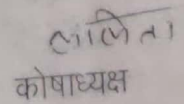 ललिता
कोषाध्यक्ष